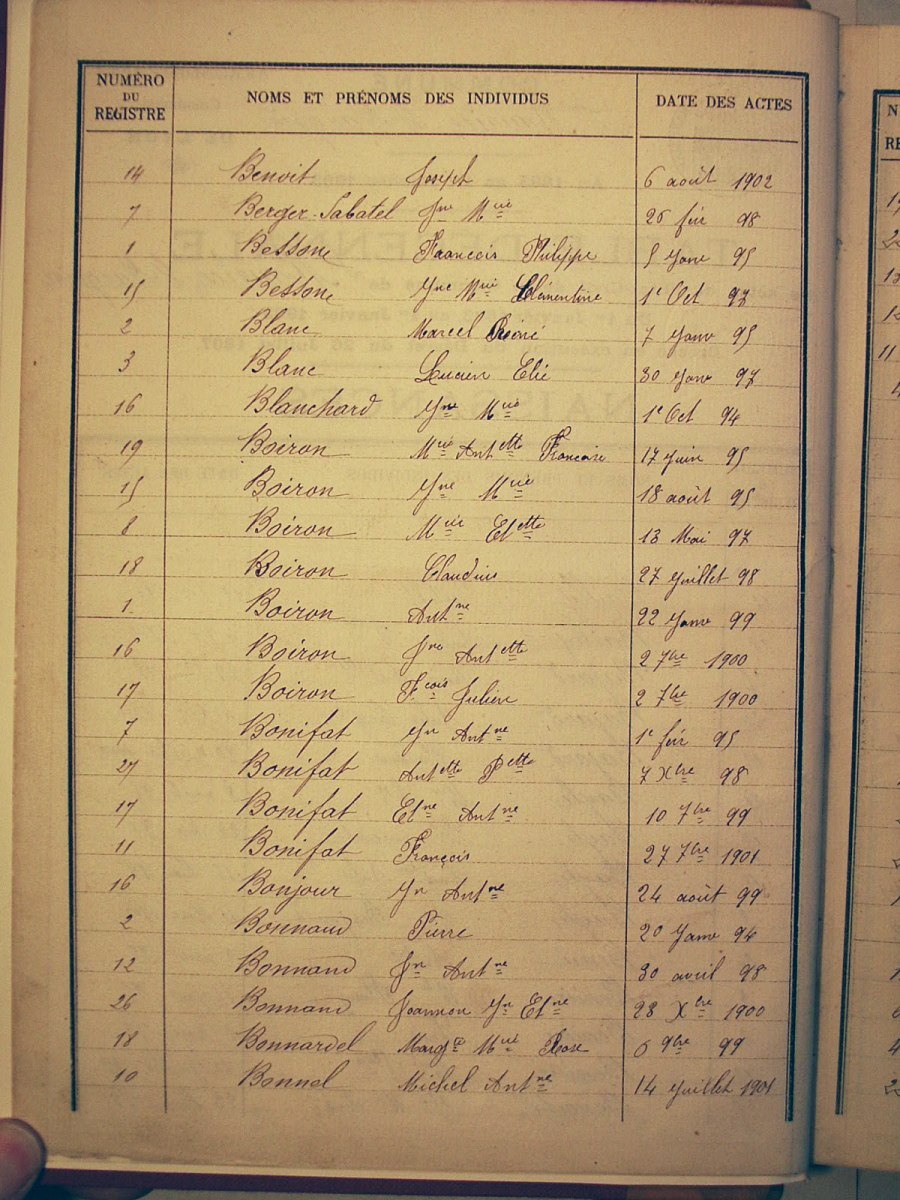 NUMÉRO DU REGISTRE NOMS ET PRÉNOMS DES INDIVIDUS DATE DES ACTES
14 Benoit Joseph 6 août 1902
7 Berger-Sabatel Jne Mie 26 fév 98
1 Bessone Francois Philippe 5 Janv 95
15 Bessone Jne Mie Clémentine 1e Oct 97
2 Blanc Marcel Réné 7 Janv 95
3 Blanc Lucien Elie 30 Janv 97
16 Blanchard Jne Mie 1e Oct 94
19 Boiron Mie Antette Francoise 17 Juin 95
15 Boiron Jne Mie 18 août 95
8 Boiron Mie Etette 13 Mai 97
18 Boiron Claudius 27 Juillet 98
1. Boiron Antne 22 Janv 99
16 Boiron Jne Antette 2 7bre 1900
17 Boiron Fcois Julien 2 7bre 1900
7 Bonifat Jn Antne 1e fév 95
27 Bonifat Antette Pette 7 Xbre 98
17 Bonifat Etne Antne 10 7bre 99
11 Bonifat François 27 7bre 1901
16 Bonjour Jn Antne 24 août 99
2 Bonnand Pierre 20 Janv 94
12 Bonnand Jn Antne 30 avril 98
26 Bonnand Joannon Jn Etne 28 Xbre 1900
18 Bonnardel Margte Mie Rose 6 9bre 99
10 Bonnel Michel Antne 14 Juillet 1901